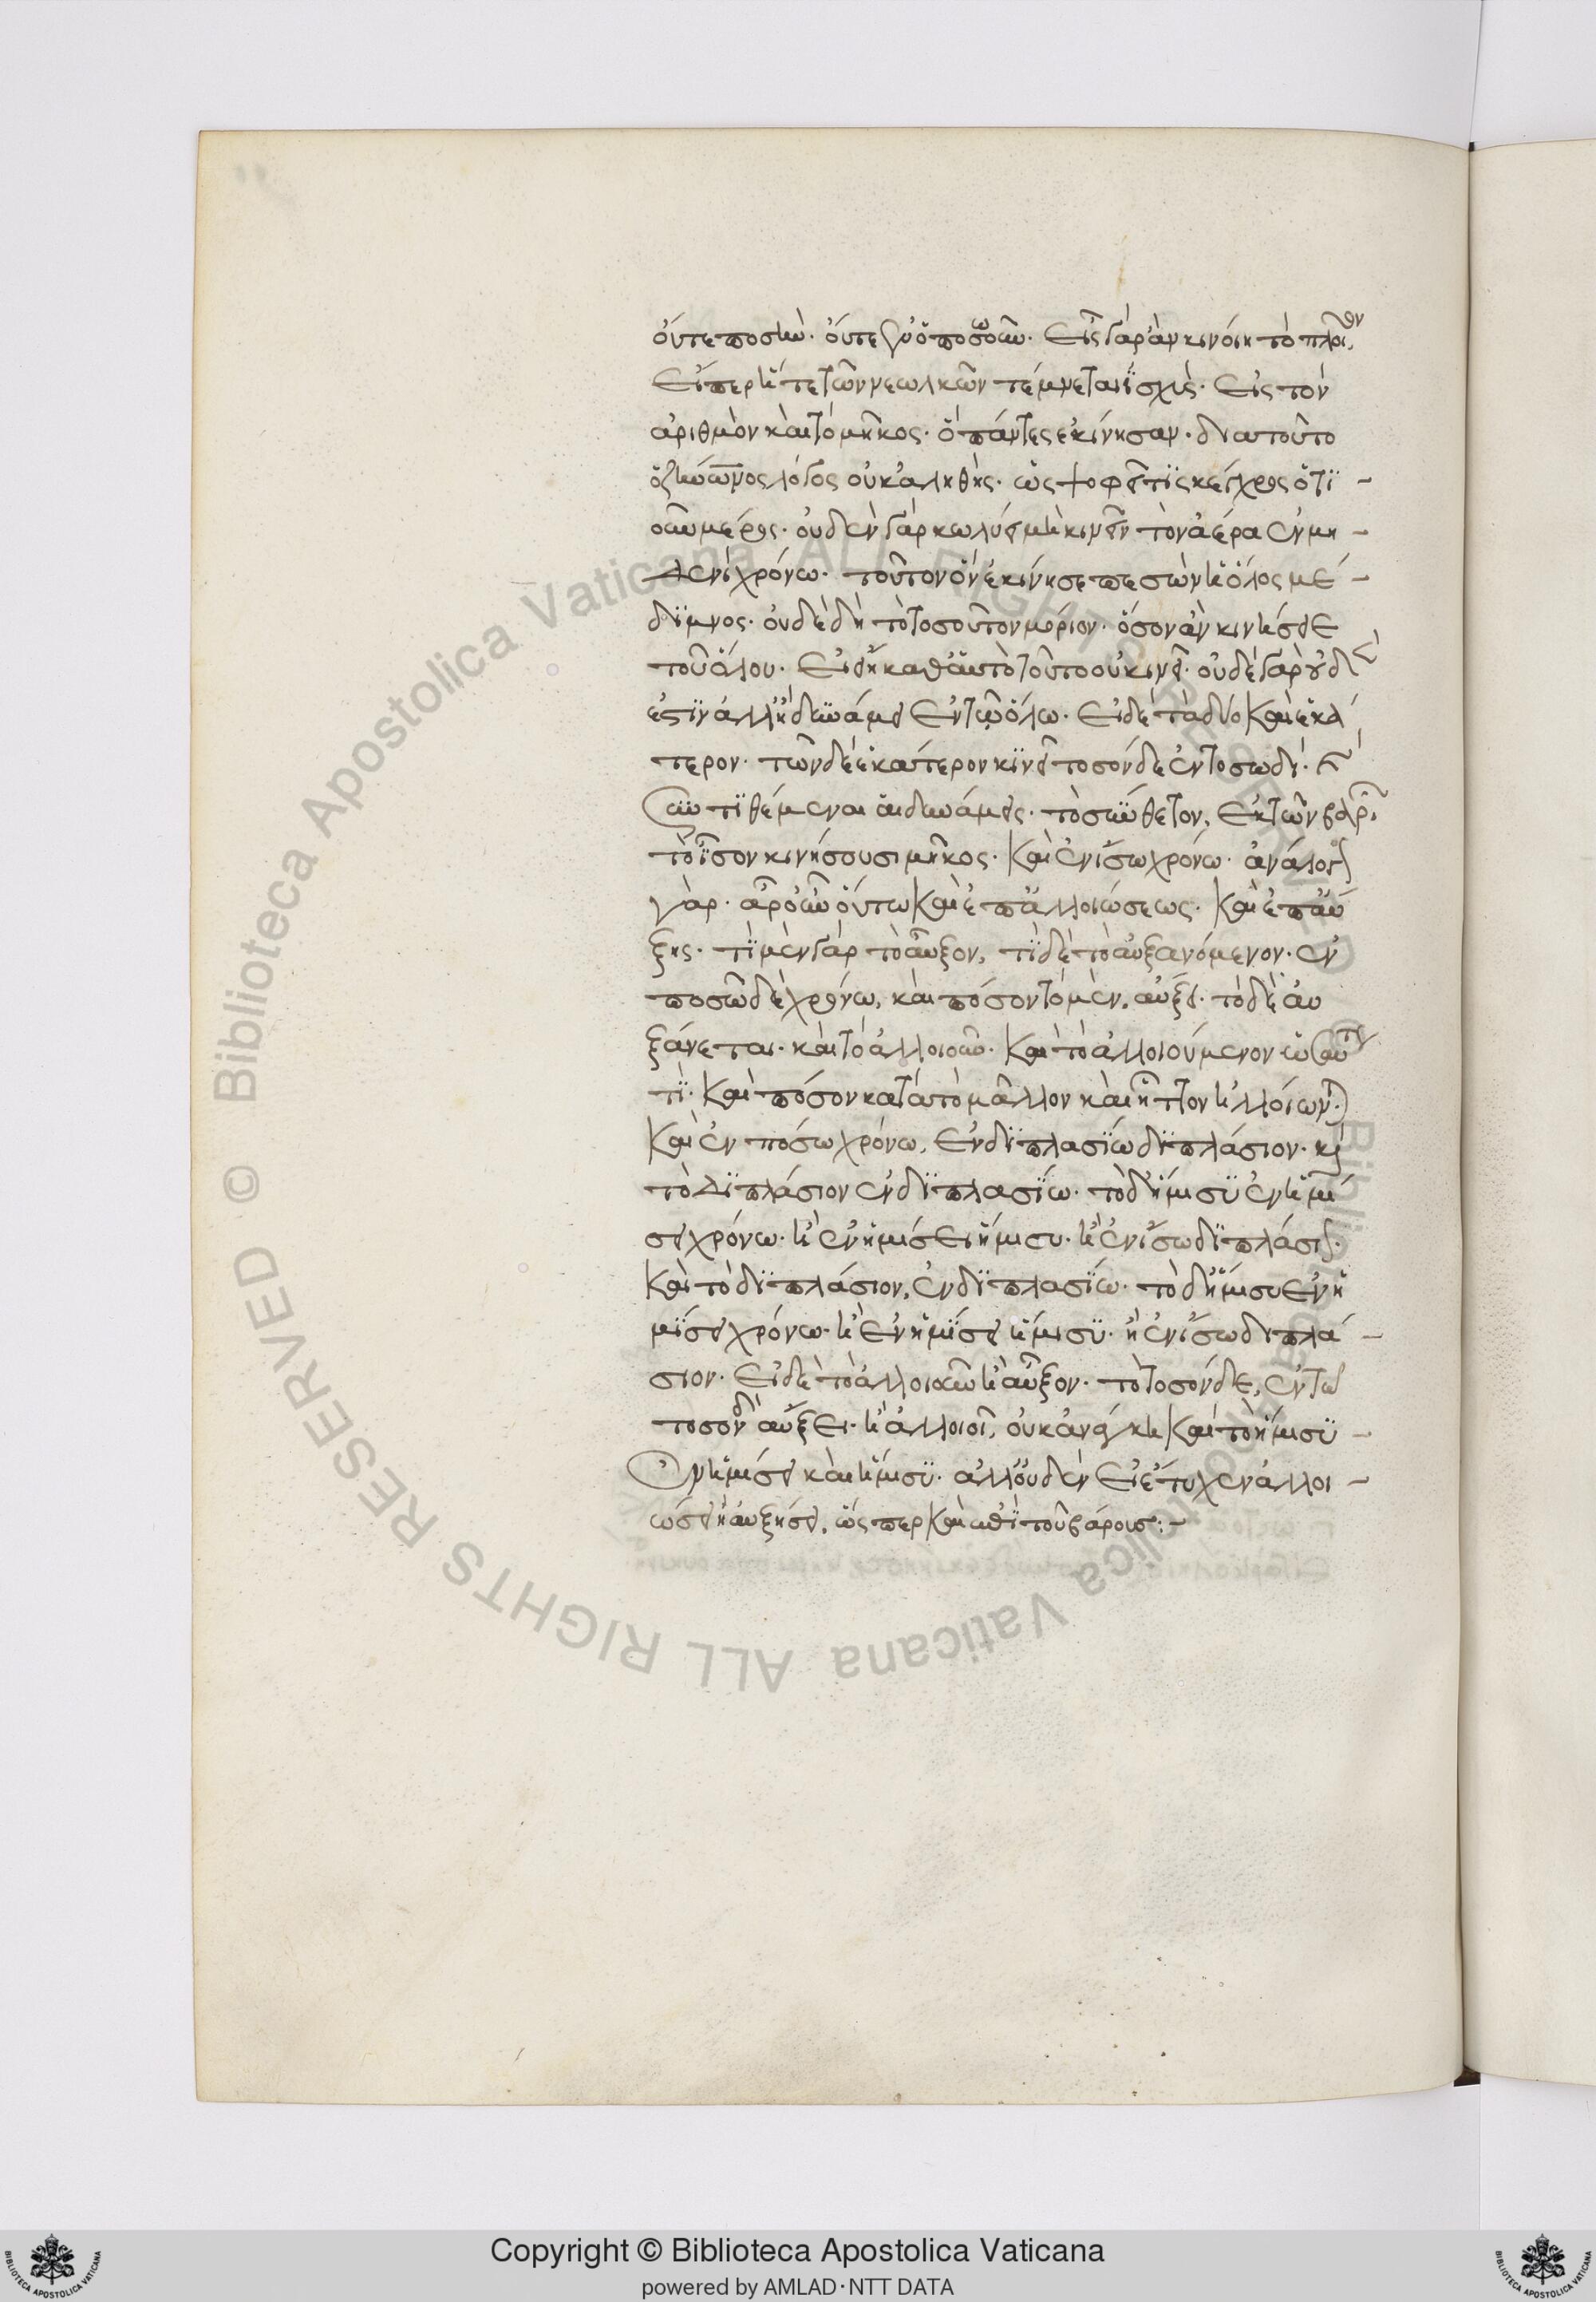 οὔτε ποσὴν· οὔτ' ἐν ὁποσῳοῦν· εἷς γὰρ ἂν κινοίη τὸ πλοῖον,
εἴπερ ἥ τε τῶν νεωλκῶν τέμνεται ϊσχὺς· εἰς τὸν
ἀριθμὸν καὶ τὸ μῆκος· ὃ πάντες ἐκίνησαν· διατοῦτο
ὁ ζήνωνος λόγος οὐκ ἀληθής· ὡς ψοφεῖ τῆς κέγχρος ὁτϊ
οῦν μέρος· οὐδὲν γὰρ κωλύει μὴ κινεῖν τὸν ἀέρα ἐν μη
δενὶ χρόνω· τοῦτον ὃν ἐκίνησε πεσὼν ὁ ὅλος μέ
διμνος· οὐδὲ δὴ τὸ τοσοῦτον μόριον· ὅσον ἂν κινήσειε
τοῦ ὅλου· εἰ εἴη καθ' αὑτὸ τοῦτο οὐ κινεῖ· οὐδὲ γὰρ οὐδὲν
ἐστϊν ἀλλ' ἢ δυνάμει ἐν τῶ ὅλω· εἰ δὲ τὰ δύο καὶ ἑκά
τερον· τῶνδε ἑκάτερον κϊνεῖ τοσόνδε ἐν τοσωδὶ· καὶ
συντϊθέμεναι αἱ δυνάμεις· τὸ σύνθετον, ἐκ τῶν βαρῶν
τὸ ἴσον κινήσουσι μῆκος· καὶ ἐν ἴσω χρόνω· ἀνάλογον
γὰρ· ἆρ' οὖν οὕτω καὶ ἐπ' ἀλλοιώσεως· καὶ ἐπ' αὐ
ξης· τὶ μὲν γὰρ τὸ αὖξον, τὶ δὲ τὸ αὐξανόμενον· ἐν
ποσῶ δὲ χρόνω, καὶ πόσον τὸ μὲν, αὔξει· τὸ δὲ αὐ
ξάνεται· καὶ τὸ ἀλλοιοῦν· καὶ τὸ ἀλλοιούμενον ὡσαύτως
τϊ· καὶ πόσον κατὰ τὸ μᾶλλον καὶ ἧττον ἠλλοίωται·
καὶ ἐν πόσω χρόνω, ἐν διπλασϊω διπλάσιον· καὶ
τὸ διπλάσιον ἐν διπλασϊω· τὸ δ' ἥμισϋ ἐν ἡμί
σει χρόνω· ἢ ἐν ἡμίσει ἥμισυ· ἢ ἐν ἴσω διπλάσιον·
καὶ τὸ διπλάσιον, ἐν διπλασϊω· τὸ δ' ἥμισυ ἐν ἡ
μϊσει χρόνω· ἢ ἐν ἡμίσει ἥμισϋ· ἢ ἐν ἴσω διπλά
σιον· εἰ δὲ τὸ ἀλλοιοῦν ἢ αὖξον· τὸ τοσόνδε, ἐν τῶ
τοσῶδε αὔξει· ἢ ἀλλοιοῖ, οὐκ ἀνάγκη καὶ τὸ ἥμισϋ
ἐν ἡμίσει καὶ ἥμισϋ· ἀλλ' οὐδὲν εἰ ἔτυχεν ἀλλοι
ώσει ἢ αὐξήσει, ὥσπερ καὶ ἐπὶ τοῦ βάρους:
Copyright © Biblioteca Apostolica Vaticana
powered by AMLAD·NTT DATA
© Biblioteca Apostolica Vaticana ALL RIGHTS RESERVED
© Biblioteca Apostolica Vaticana ALL RIGHTS RESERVED
BIBLIOTECA APOSTOLICA VATICANA
BIBLIOTECA APOSTOLICA VATICANA